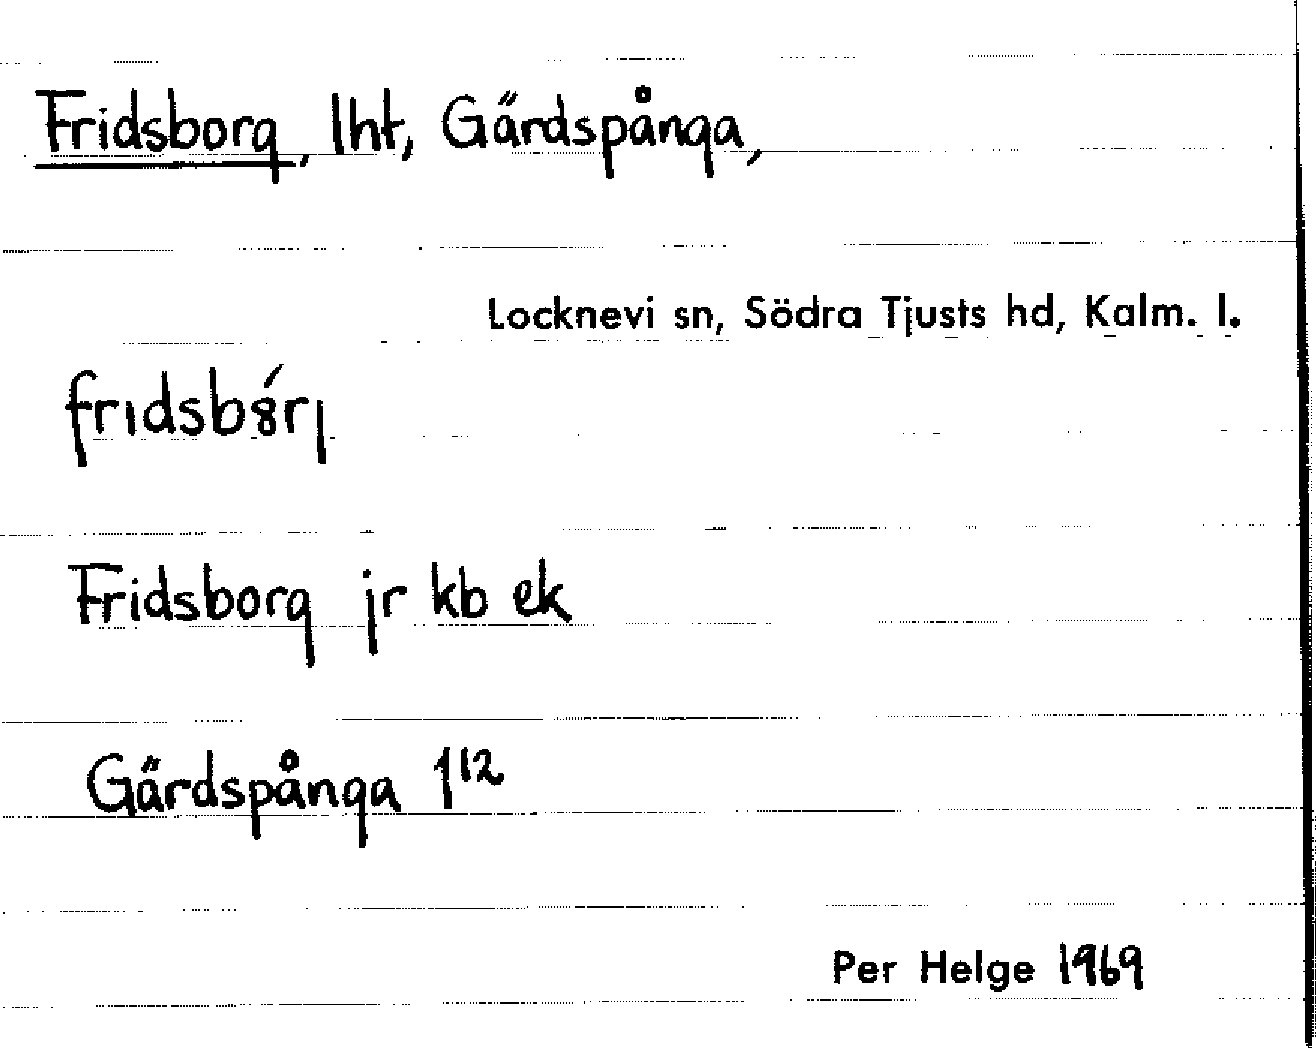 Fridsborg, lht, Gärdspånga,
Locknevi sn, Södra Tjusts hd, Kalm. l.
Fridsborg jr kb ek
Gärdspånga 1¹²
Per Helge 1969